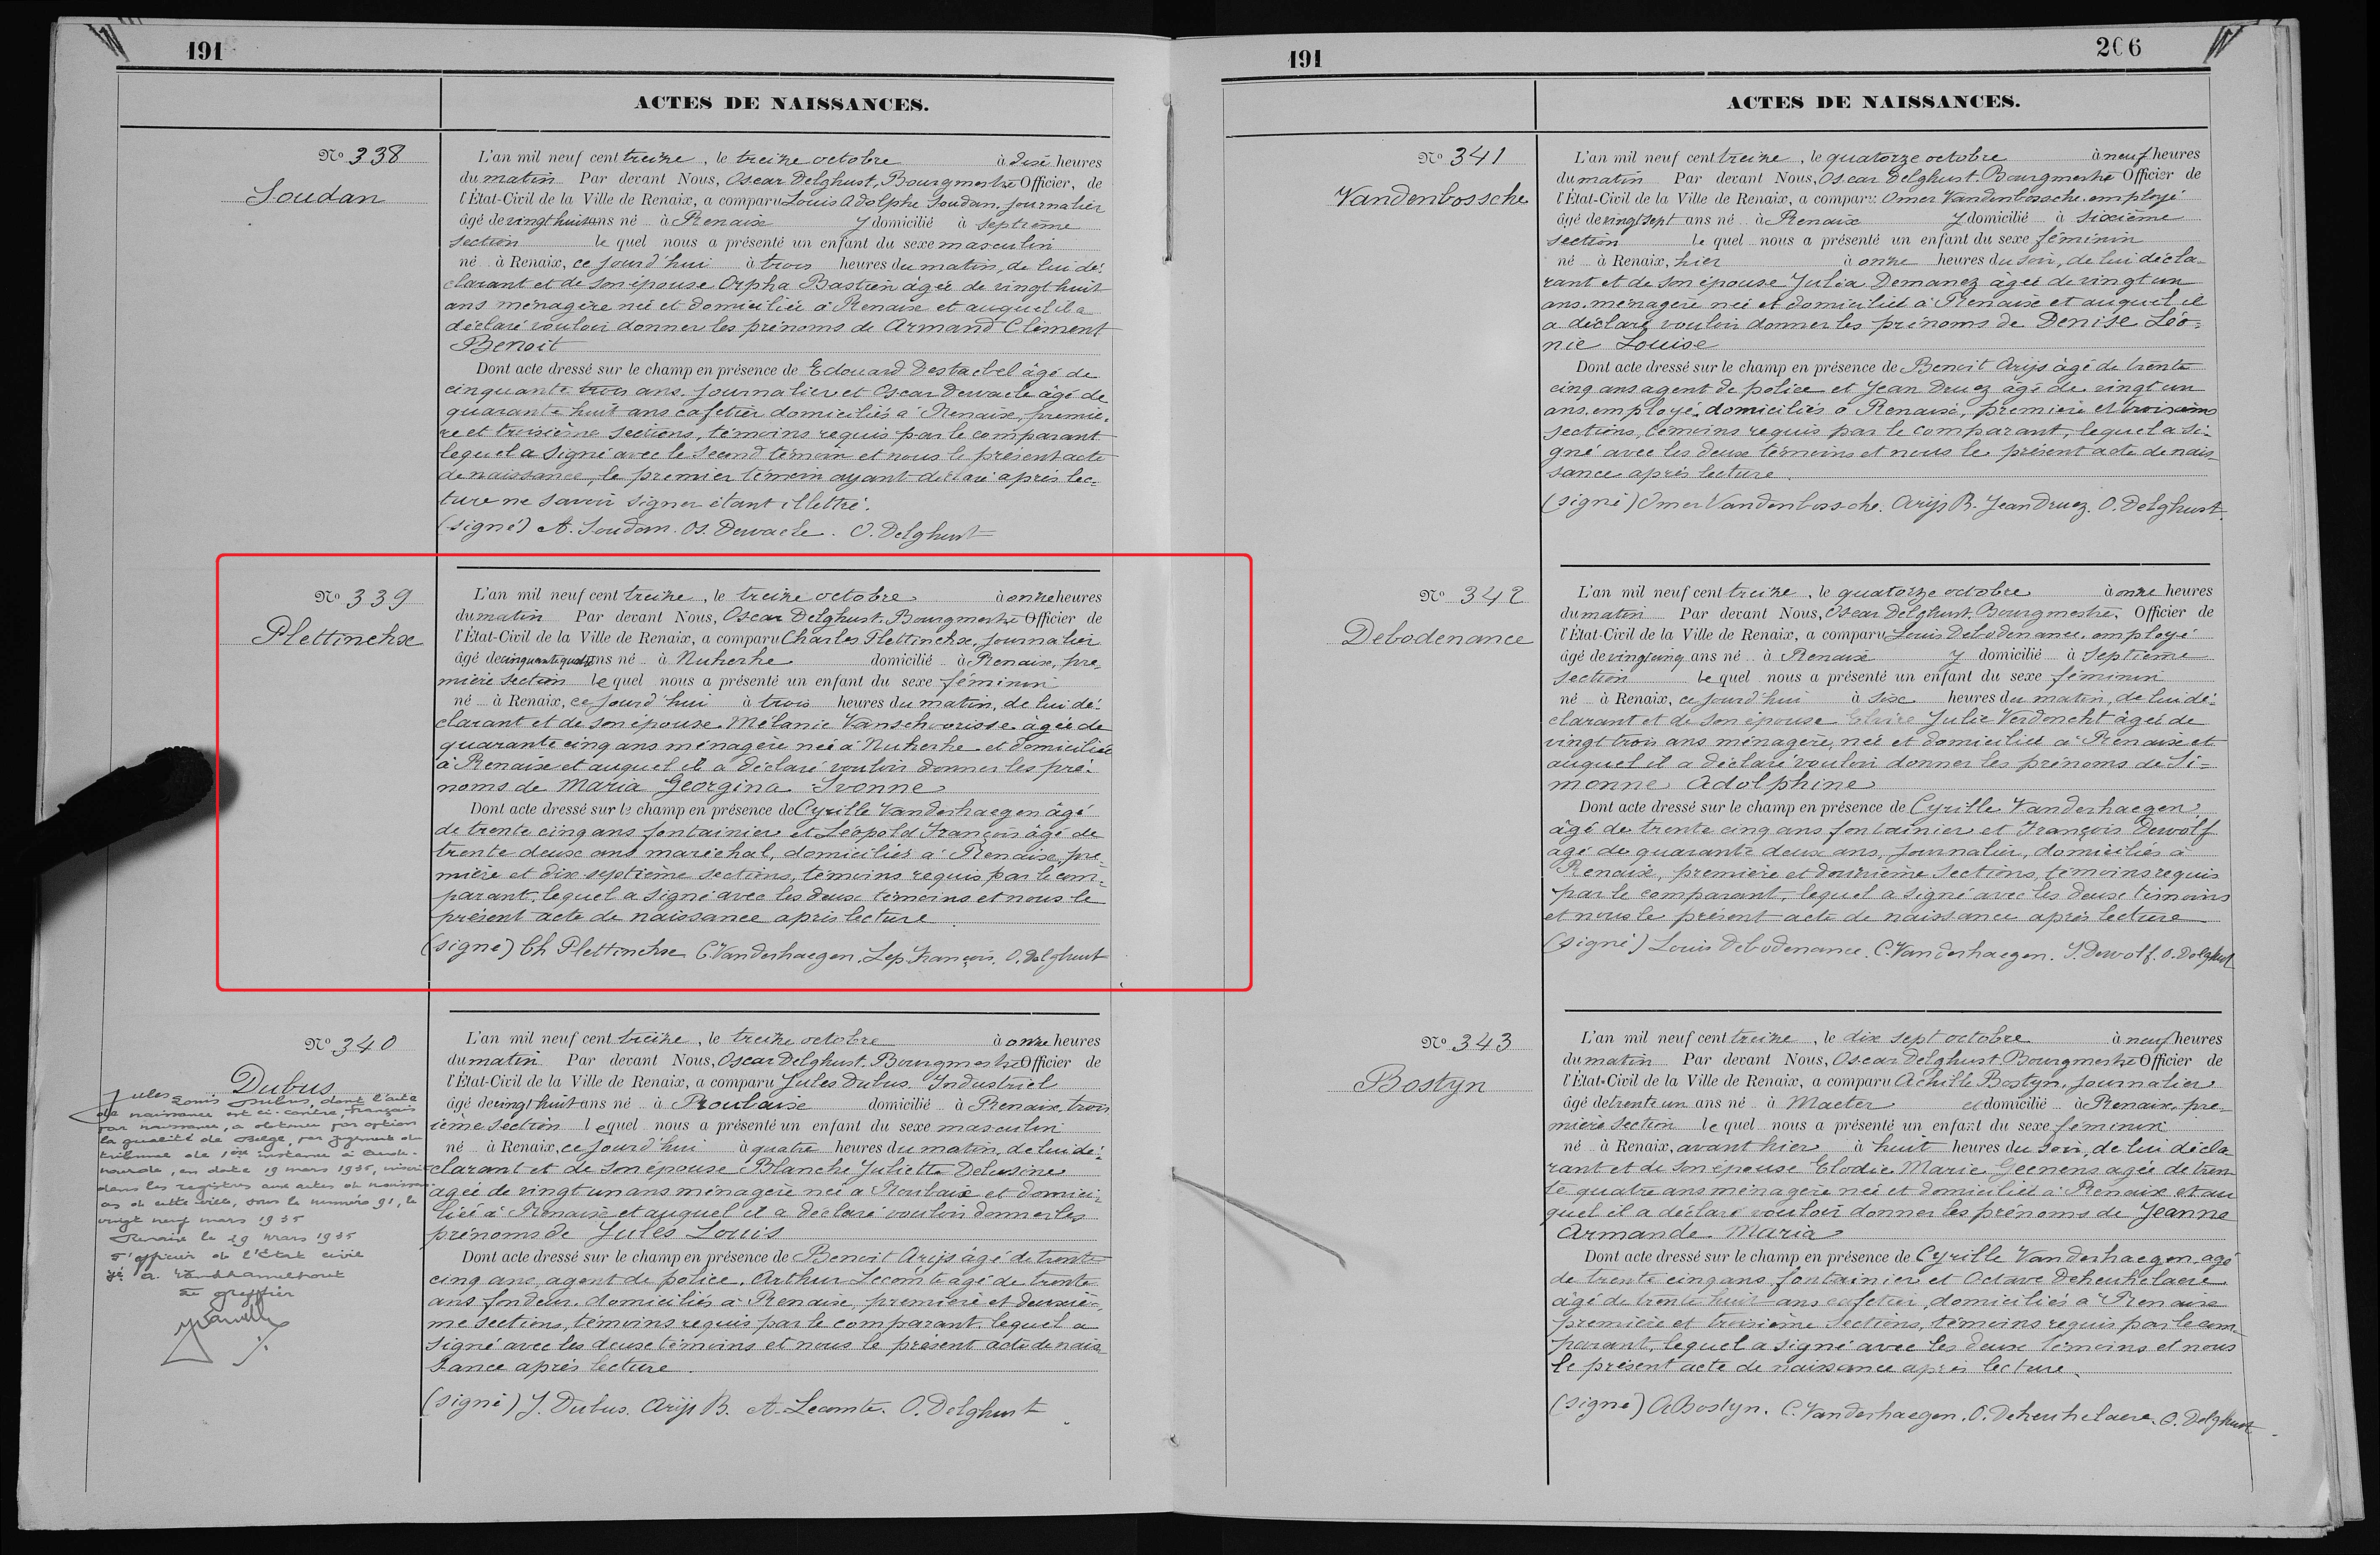 191
ACTES DE NAISSANCES.
Nº 338
Soudan
L'an mil neuf cent treize, le treize octobre à dix heures
du matin Par devant Nous, Oscar Delghust, Bourgmestre Officier, de
l'État-Civil de la Ville de Renaix, a comparu Louis Adolphe Soudan, journalier
âgé de vingt huit ans né à Renaix y domicilié à septième
section lequel nous a présenté un enfant du sexe masculin
né à Renaix, ce jourd'hui à trois heures du matin, de lui dé-
clarant et de son épouse Orpha Bastien âgée de vingt huit
ans ménagère née et domiciliée à Renaix et auquel il a
déclaré vouloir donner les prénoms de Armand Clément
Benoit
Dont acte dressé sur le champ en présence de Edouard Destaebel âgé de
cinquante trois ans, journalier et Oscar Dewaele âgé de
quarante huit ans cafetier domiciliés à Renaix, premiè-
re et troisième sections, témoins requis par le comparant
lequel a signé avec le second témoin et nous le présent acte
de naissance, le premier témoin ayant déclaré après lec-
ture ne savoir signer étant illettré.
(signé) A. Soudan. Os. Dewaele. O. Delghust
Nº 339
Plettinckx
L'an mil neuf cent treize, le treize octobre à onze heures
du matin Par devant Nous, Oscar Delghust, Bourgmestre Officier de
l'État-Civil de la Ville de Renaix, a comparu Charles Plettinckx, journalier
âgé de cinquante quatre ans né à Nukerke domicilié à Renaix, pre-
mière section lequel nous a présenté un enfant du sexe féminin
né à Renaix, ce jourd'hui à trois heures du matin, de lui dé-
clarant et de son épouse Mélanie Vanschoorisse âgée de
quarante cinq ans ménagère née à Nukerke et domiciliée
à Renaix et auquel il a déclaré vouloir donner les pré-
noms de Maria Georgina Ivonne
Dont acte dressé sur le champ en présence de Cyrille Vanderhaegen âgé
de trente cinq ans fontainier et Léopold François âgé de
trente deux ans maréchal, domiciliés à Renaix, pre-
mière et dix septième sections, témoins requis par le com-
parant, lequel a signé avec les deux témoins et nous le
présent acte de naissance après lecture.
(signé) Ch Plettinckx C. Vanderhaegen. Lep. François. O. Delghust
Nº 340
Dubus
Jules Louis Dubus, dont l'acte
de naissance est ci-contre, français
par naissance, a obtenu par option
la qualité de Belge, par jugement du
tribunal de 1ère instance à Aude-
narde, en date 19 mars 1935, inscrit
dans les registres aux actes de naissan-
ces de cette ville, sous le numéro 91, le
vingt neuf mars 1935
Renaix le 29 mars 1935
L'officier de l'État civil
Le greffier
L'an mil neuf cent treize, le treize octobre à onze heures
du matin Par devant Nous, Oscar Delghust, Bourgmestre Officier de
l'État-Civil de la Ville de Renaix, a comparu Jules Dubus, Industriel
âgé de vingt huit ans né à Roubaix domicilié à Renaix, trois
ième section lequel nous a présenté un enfant du sexe masculin
né à Renaix, ce jourd'hui à quatre heures du matin, de lui dé-
clarant et de son épouse Blanche Juliette Delusine
âgée de vingt un ans ménagère née à Roubaix et domici-
liée à Renaix et auquel il a déclaré vouloir donner les
prénoms de Jules Louis
Dont acte dressé sur le champ en présence de Benoit Arijs âgé de trente
cinq ans, agent de police, Arthur Lecomte âgé de trente
ans fondeur, domiciliés à Renaix, première et deuxiè-
me sections, témoins requis par le comparant, lequel a
signé avec les deux témoins et nous le présent acte de nais-
sance après lecture.
(signé) J. Dubus. Arijs B. A. Lecomte. O. Delghust
191
206
ACTES DE NAISSANCES.
Nº 341
Vandenbossche
L'an mil neuf cent treize, le quatorze octobre à neuf heures
du matin Par devant Nous, Oscar Delghust, Bourgmestre Officier de
l'État-Civil de la Ville de Renaix, a comparu Omer Vandenbossche, employé
âgé de vingt sept ans né à Renaix y domicilié à sixième
section lequel nous a présenté un enfant du sexe féminin
né à Renaix, hier à onze heures du soir, de lui décla-
rant et de son épouse Julia Demanez âgée de vingt un
ans, ménagère née et domiciliée à Renaix et auquel il
a déclaré vouloir donner les prénoms de Denise Léo-
nie Louise
Dont acte dressé sur le champ en présence de Benoit Arijs âgé de trente
cinq ans agent de police et Jean Druez âgé de vingt un
ans, employé, domiciliés à Renaix, première et troisième
sections, témoins requis par le comparant, lequel a si-
gné avec les deux témoins et nous le présent acte de nais-
sance après lecture.
(signé) Omer Vandenbossche. Arijs B. Jean Druez. O. Delghust.
Nº 342
Debodenance
L'an mil neuf cent treize, le quatorze octobre à onze heures
du matin Par devant Nous, Oscar Delghust, Bourgmestre, Officier de
l'État-Civil de la Ville de Renaix, a comparu Louis Debodenance, employé
âgé de vingt cinq ans né à Renaix y domicilié à septième
section lequel nous a présenté un enfant du sexe féminin
né à Renaix, ce jourd'hui à six heures du matin, de lui dé-
clarant et de son épouse Elvire Julie Verdonckt âgée de
vingt trois ans ménagère, née et domiciliée à Renaix et
auquel il a déclaré vouloir donner les prénoms de Si-
monne Adolphine
Dont acte dressé sur le champ en présence de Cyrille Vanderhaegen,
âgé de trente cinq ans fontainier et François Dewolf
âgé de quarante deux ans, journalier, domiciliés à
Renaix, première et douzième sections, témoins requis
par le comparant, lequel a signé avec les deux témoins
et nous le présent acte de naissance après lecture
(signé) Louis Debodenance. C. Vanderhaegen. F. Dewolf. O. Delghust
Nº 343
Bostyn
L'an mil neuf cent treize, le dix sept octobre à neuf heures
du matin Par devant Nous, Oscar Delghust, Bourgmestre Officier de
l'État-Civil de la Ville de Renaix, a comparu Achille Bostyn, journalier
âgé de trente un ans né à Maeter et domicilié à Renaix, pre-
mière section lequel nous a présenté un enfant du sexe féminin
né à Renaix, avant hier à huit heures du soir, de lui décla
rant et de son épouse Elodie Marie Geenens âgée de tren-
te quatre ans ménagère née et domiciliée à Renaix et au
quel il a déclaré vouloir donner les prénoms de Jeanne
Armande Maria
Dont acte dressé sur le champ en présence de Cyrille Vanderhaegen, âgé
de trente cinq ans, fontainier et Octave Dekeukelaere
âgé de trente huit ans cafetier, domiciliés à Renaix
première et troisième sections, témoins requis par le com-
parant, lequel a signé avec les deux témoins et nous
le présent acte de naissance après lecture.
(signé) A Bostyn. C. Vanderhaegen. O. Dekeukelaere. O. Delghust